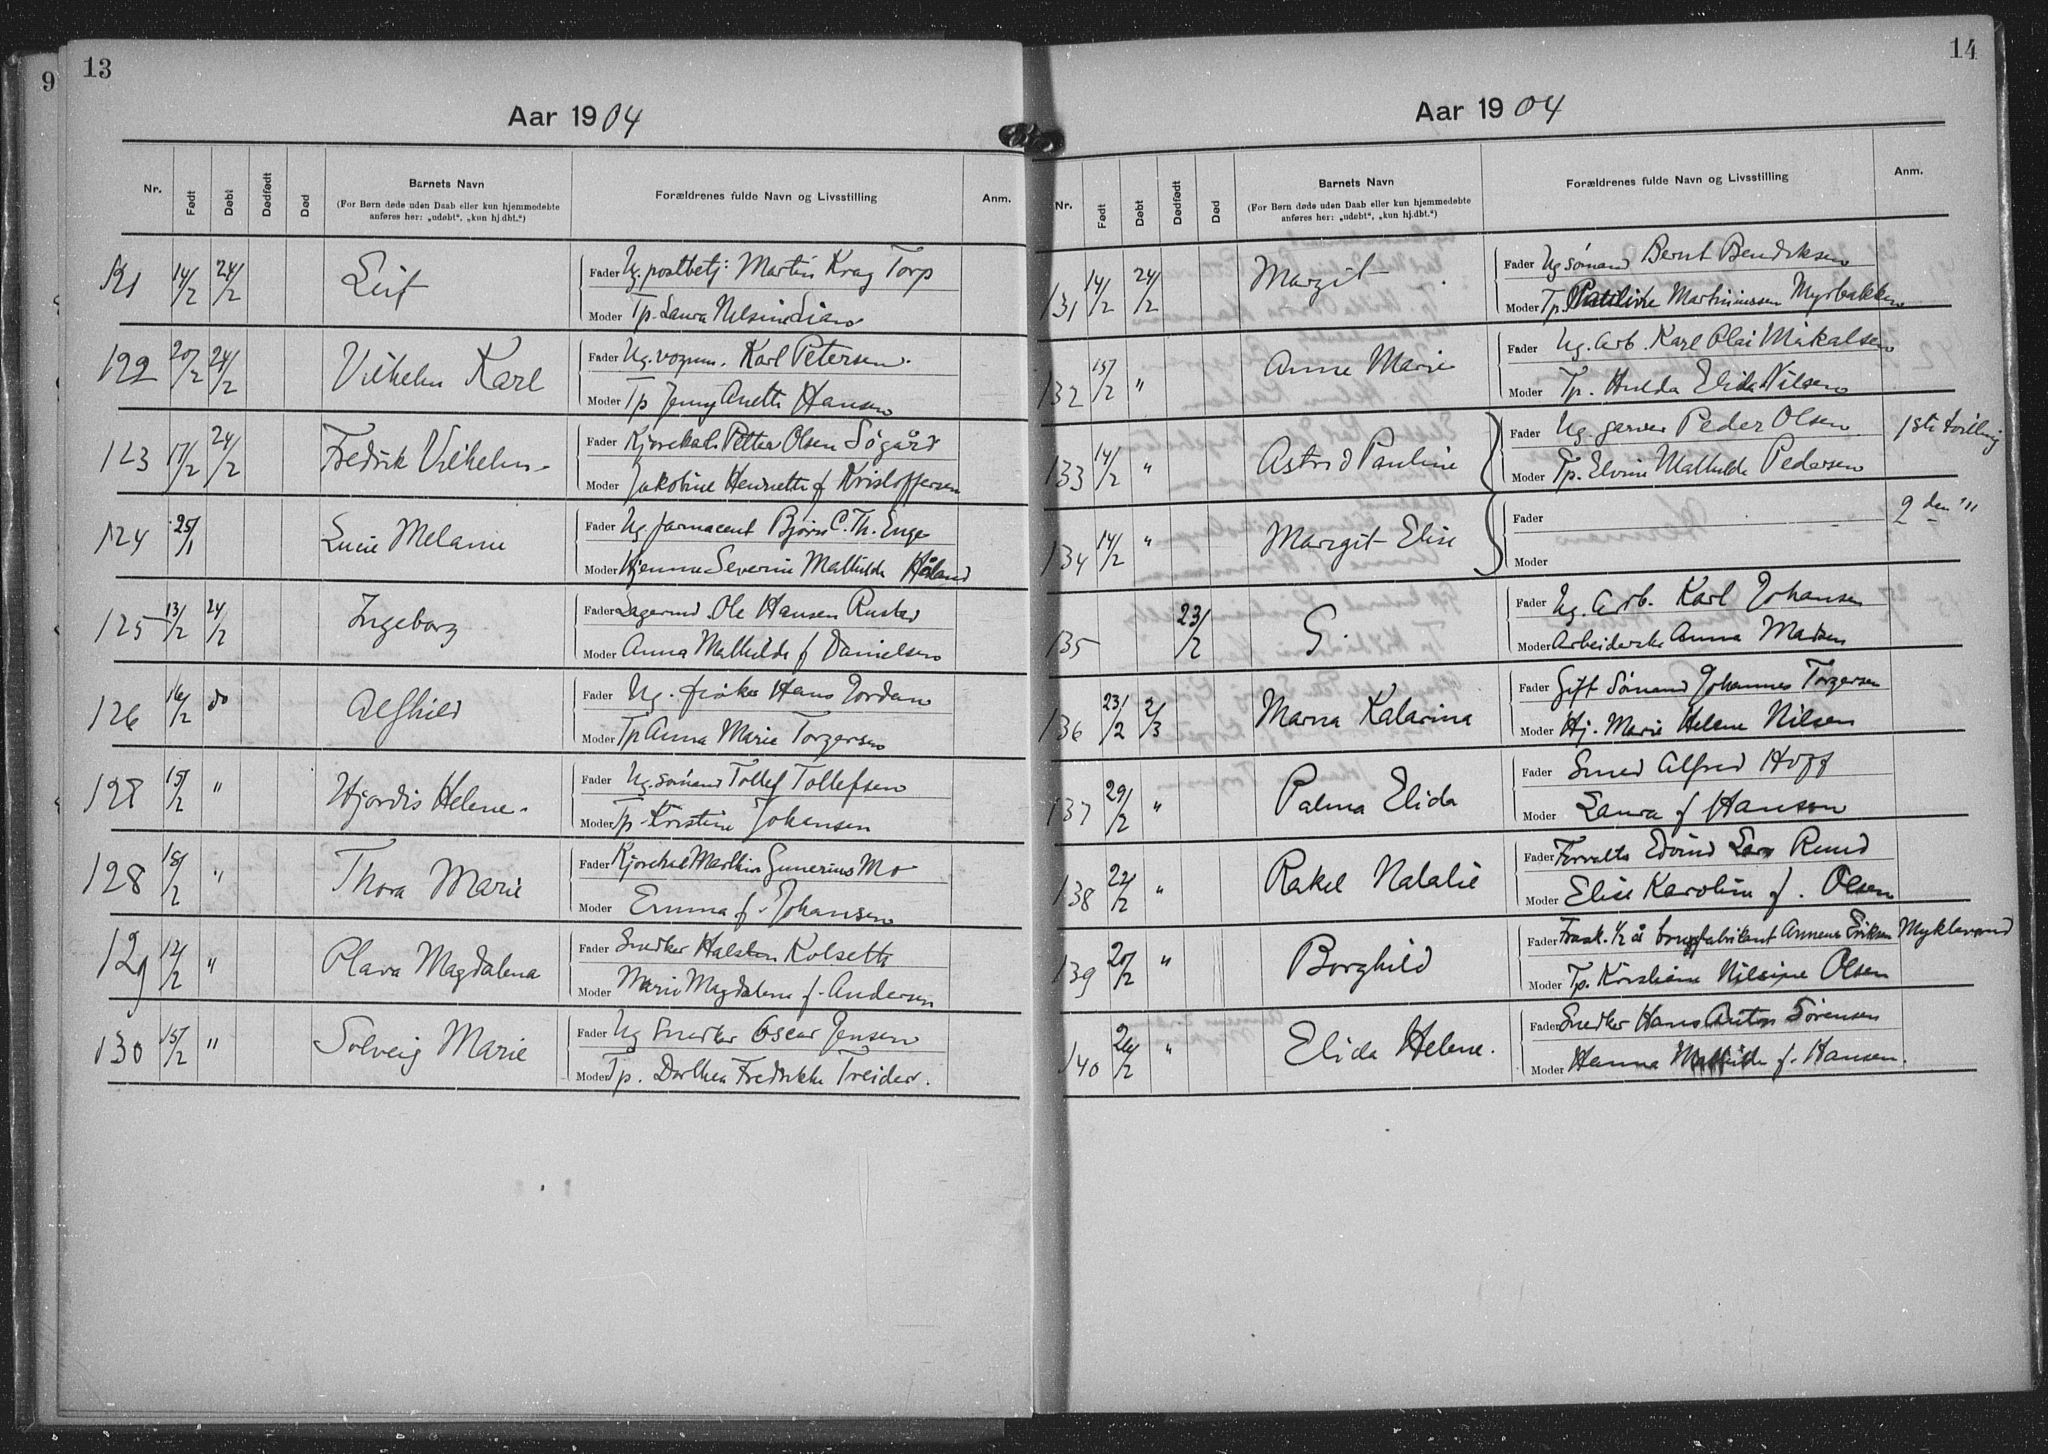 9
13
Aar 1904
Nr.
Født
Døbt
Dødfødt
Død
Barnets Navn
(For Børn døde uden Daab eller kun hjemmedøbte
anføres her: „udøbt“, „kun hj.dbt.“)
Forældrenes fulde Navn og Livsstilling
Anm.
14/2 24/2 Leif
Fader Ug. postbetj: Martin Krag Torp
Moder Tp. Laura Nelsine
122 20/2 24/2 Vilhelm Karl
Fader Ug. vognm. Karl Petersen.
Moder Tp Jenny Anette Hansen
123 17/2 24/2 Fredrik Vilhelm
Fader Kjørekal. Petter Olsen Søgård
Moder Jakobine Henriette f Kristoffersen
124 25/1 Lucie Melanie
Fader Ug. farmacent Bjørn C. Th. Enge
Moder Hjemme Severine Mathilde Håland
125 13/2 24/2 Ingeborg
Fader Lagermd Ole Hansen Rustad
Moder Anna Mathilde f Danielsen
126 16/2 do Alfhild
Fader Ug. fisker Hans Jordan
Moder Tp Anna Marie Torgersen
128 15/2 " Hjordis Helene.
Fader Ug sømand Tollef Tollefsen
Moder Tp. Kristine Johansen
128 18/2 " Thora Marie
Fader Kjørekal Marthin Gunerius Mo
Moder Emma f. Johansen
129 12/2 " Olava Magdalena
Fader Snedker Halsten Kolseth
Moder Marie Magdalene f. Andersen
130 15/2 " Solveig Marie
Fader Ug Snedker Oscar Jensen
Moder Tp. Dorthea Fredrikke Treider.
14
Aar 1904
Nr.
Født
Døbt
Dødfødt
Død
Barnets Navn
(For Børn døde uden Daab eller kun hjemmedøbte
anføres her: „udøbt“, „kun hj.dbt.“)
Forældrenes fulde Navn og Livsstilling
Anm.
131 14/2 24/2 Margit
Fader Ug sømand Bernt Bendiksen
Moder Tp. Martiniussen Myrbakken
132 15/2 " Anne Marie
Fader Ug. Arb. Karl Olai Mikalsen
Moder Tp. Hulda Elida Nilsen
133 14/2 " Astrid Pauline
Fader Ug. garver Peder Olsen 1ste tvilling
Moder Tp. Elvine Mathilde Pedersen
134 14/2 " Margit Elise
Fader 2den "
Moder
135 23/2 G.
Fader Ug. Arb. Karl Johansen
Moder Arbeiderske Anna Madsen
136 23/2 2/3 Marna Katarina
Fader Gift Sømand Johannes Torgersen
Moder Hj. Marie Helene Nilsen
137 29/2 " Palma Elida
Fader Smed Alfred Hoff
Moder Laura f Hanson
138 22/2 " Rakel Natalie
Fader Forvalts Edvind Lars Ruud
Moder Elise Karoline f. Olsen
139 20/2 " Borghild
Fader Frask. 1/2 å brugsfabrikant Annens Eriksen Myklasrud
Moder Tp. Kristiane Nilsine Olsen
140 24/2 " Elida Helene.
Fader Snedker Hans Anton Sørensen
Moder Hanna Mathilde f. Hansen.